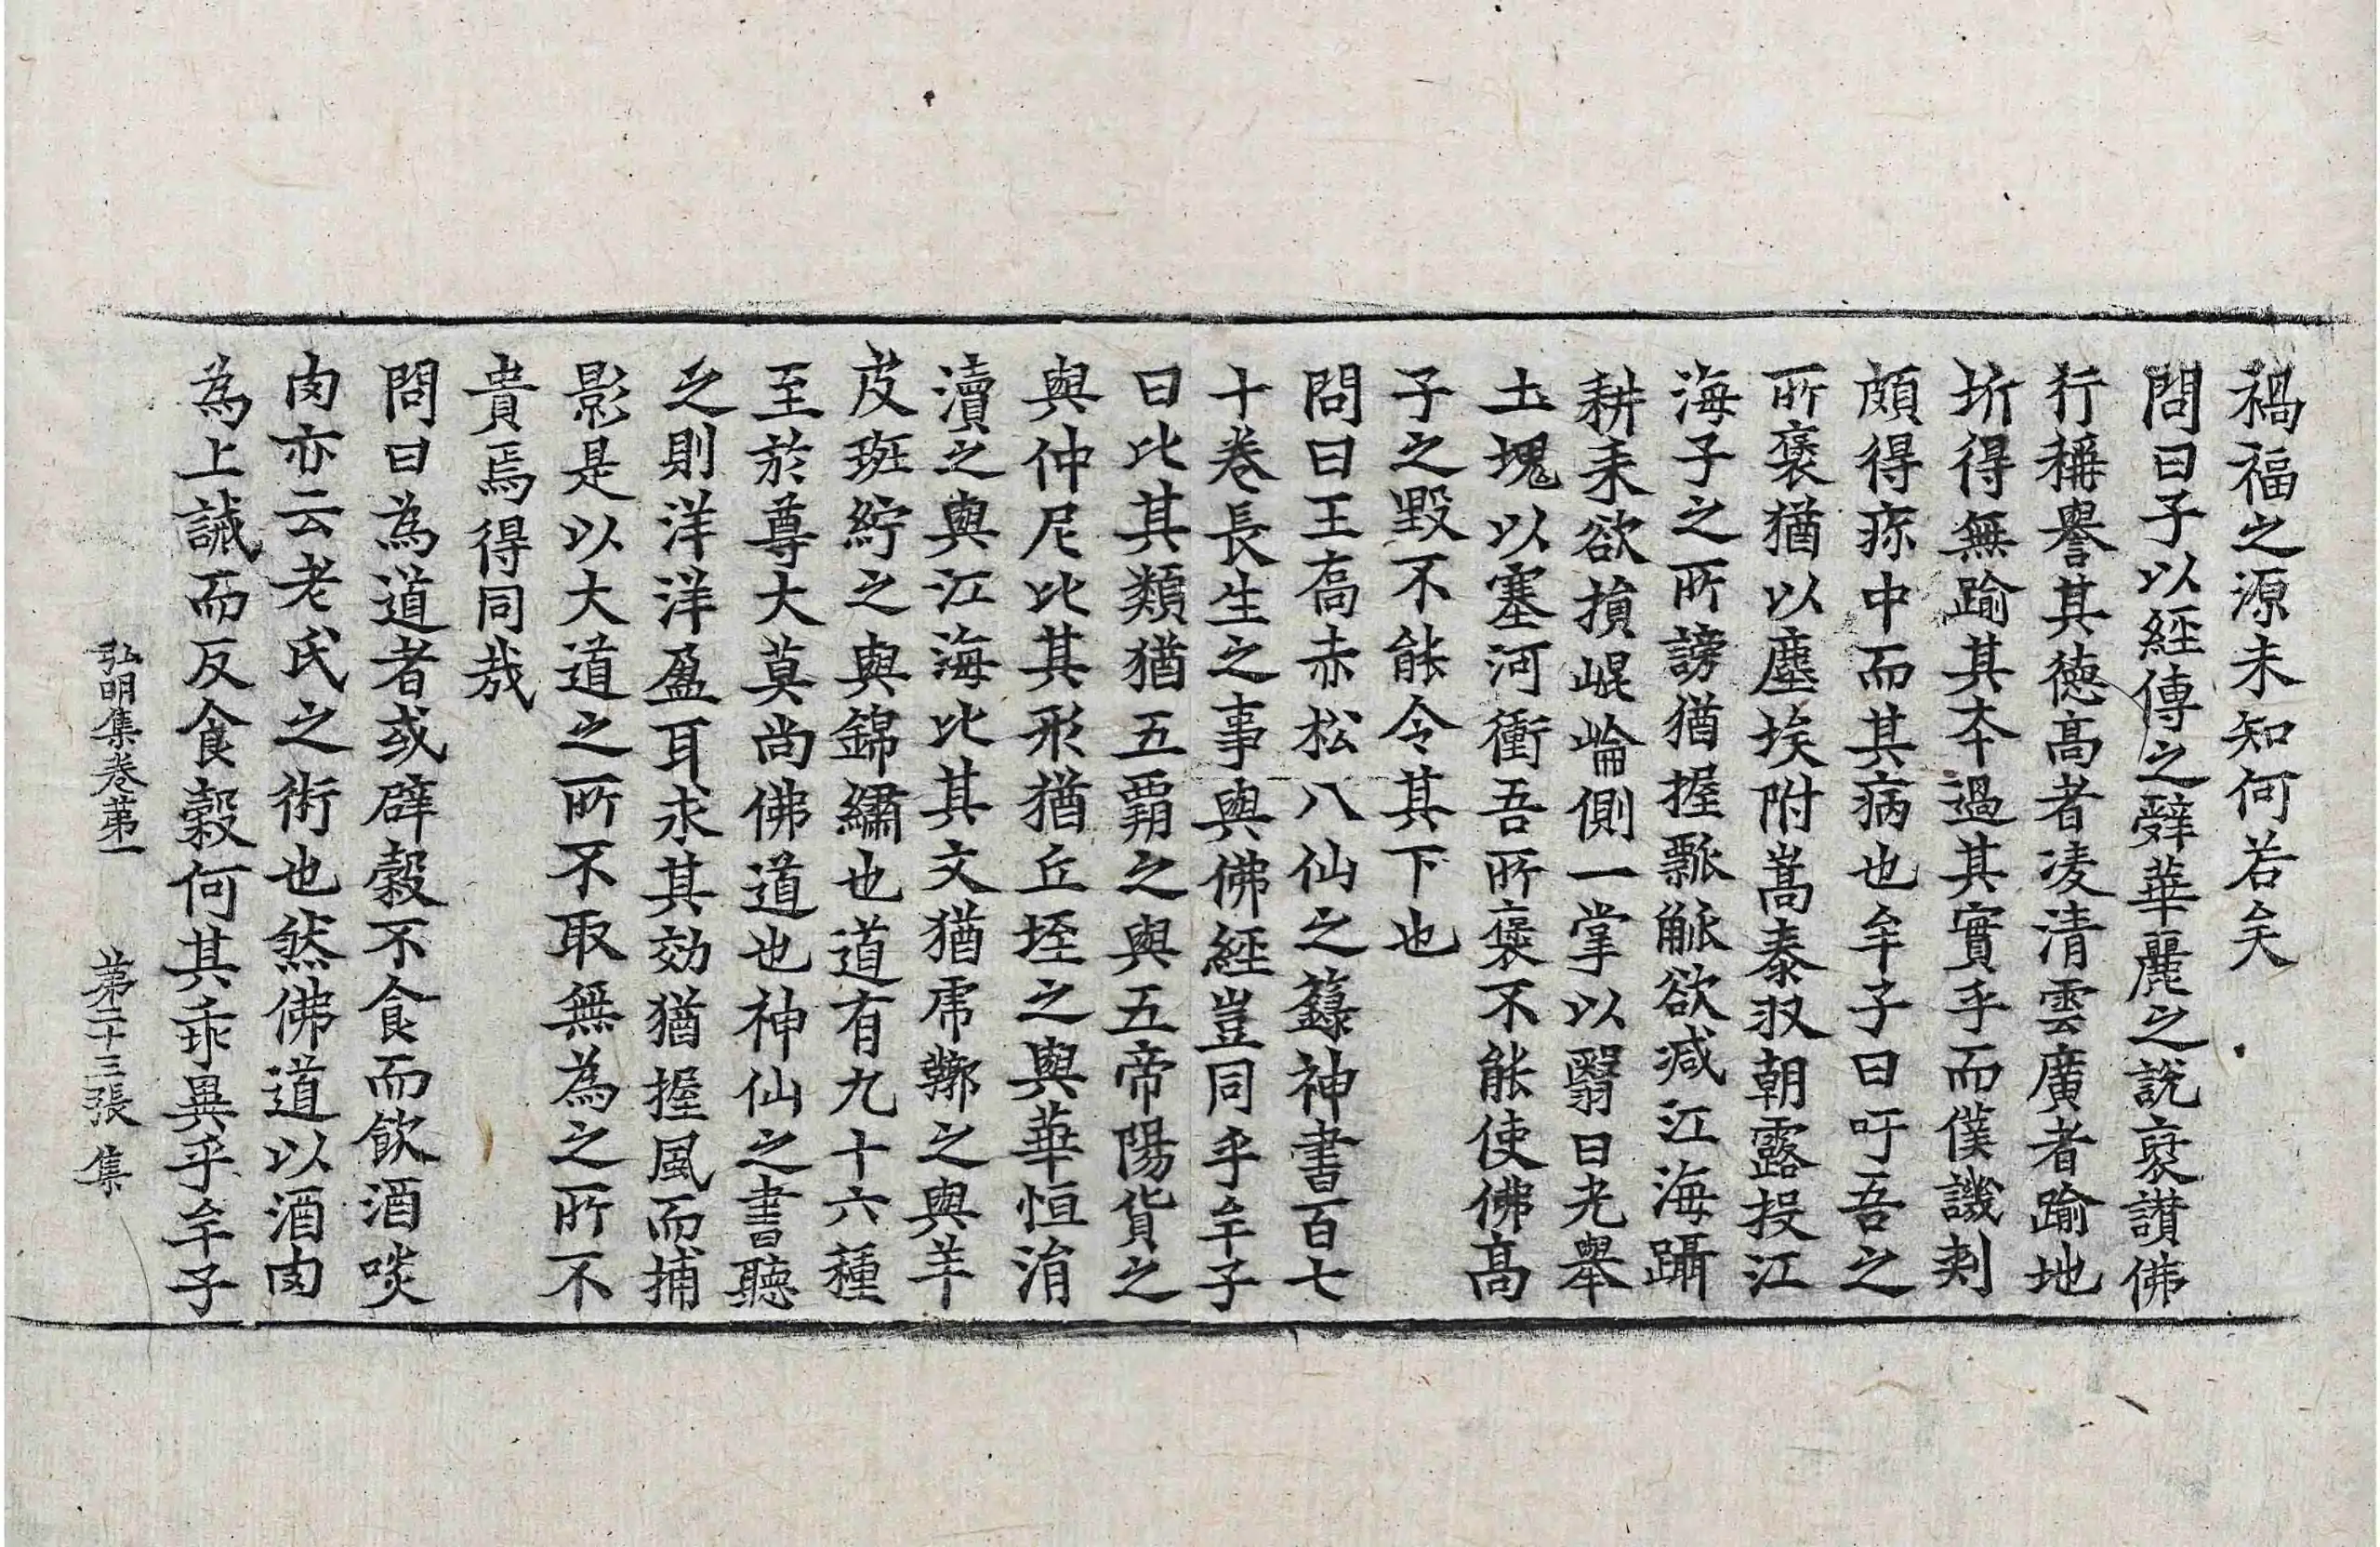 禍福之源未知何若矣
問曰子以經傳之辭華麗之說襃讃佛
行稱譽其德髙者凌清雲廣者踰地
圻得無踰其本過其實乎而僕譏刾
頗得疹中而其病也牟子曰吁吾之
所襃猶以塵埃附嵩泰収朝露投江
海子之所謗猶握瓢觚欲减江海躡
耕耒欲損崐崘側一掌以翳日光舉
土塊以塞河衝吾所襃不能使佛髙
子之毀不能令其下也
問曰王喬赤松八仙之籙神書百七
十卷長生之事與佛經豈同乎牟子
曰比其類猶五覇之與五帝陽貨之
與仲尼比其形猶丘垤之與華恒涓
瀆之與江海比其文猶虎鞹之與羊
皮班紵之與錦繡也道有九十六種
至於尊大莫尚佛道也神仙之書聽
之則洋洋盈耳求其効猶握風而捕
影是以大道之所不取無為之所不
貴焉得同哉
問曰為道者或辟穀不食而飮酒啖
肉亦云老氏之術也然佛道以酒肉
為上誡而反食穀何其乖異乎牟子
弘明集卷苐一 苐二十三張 集